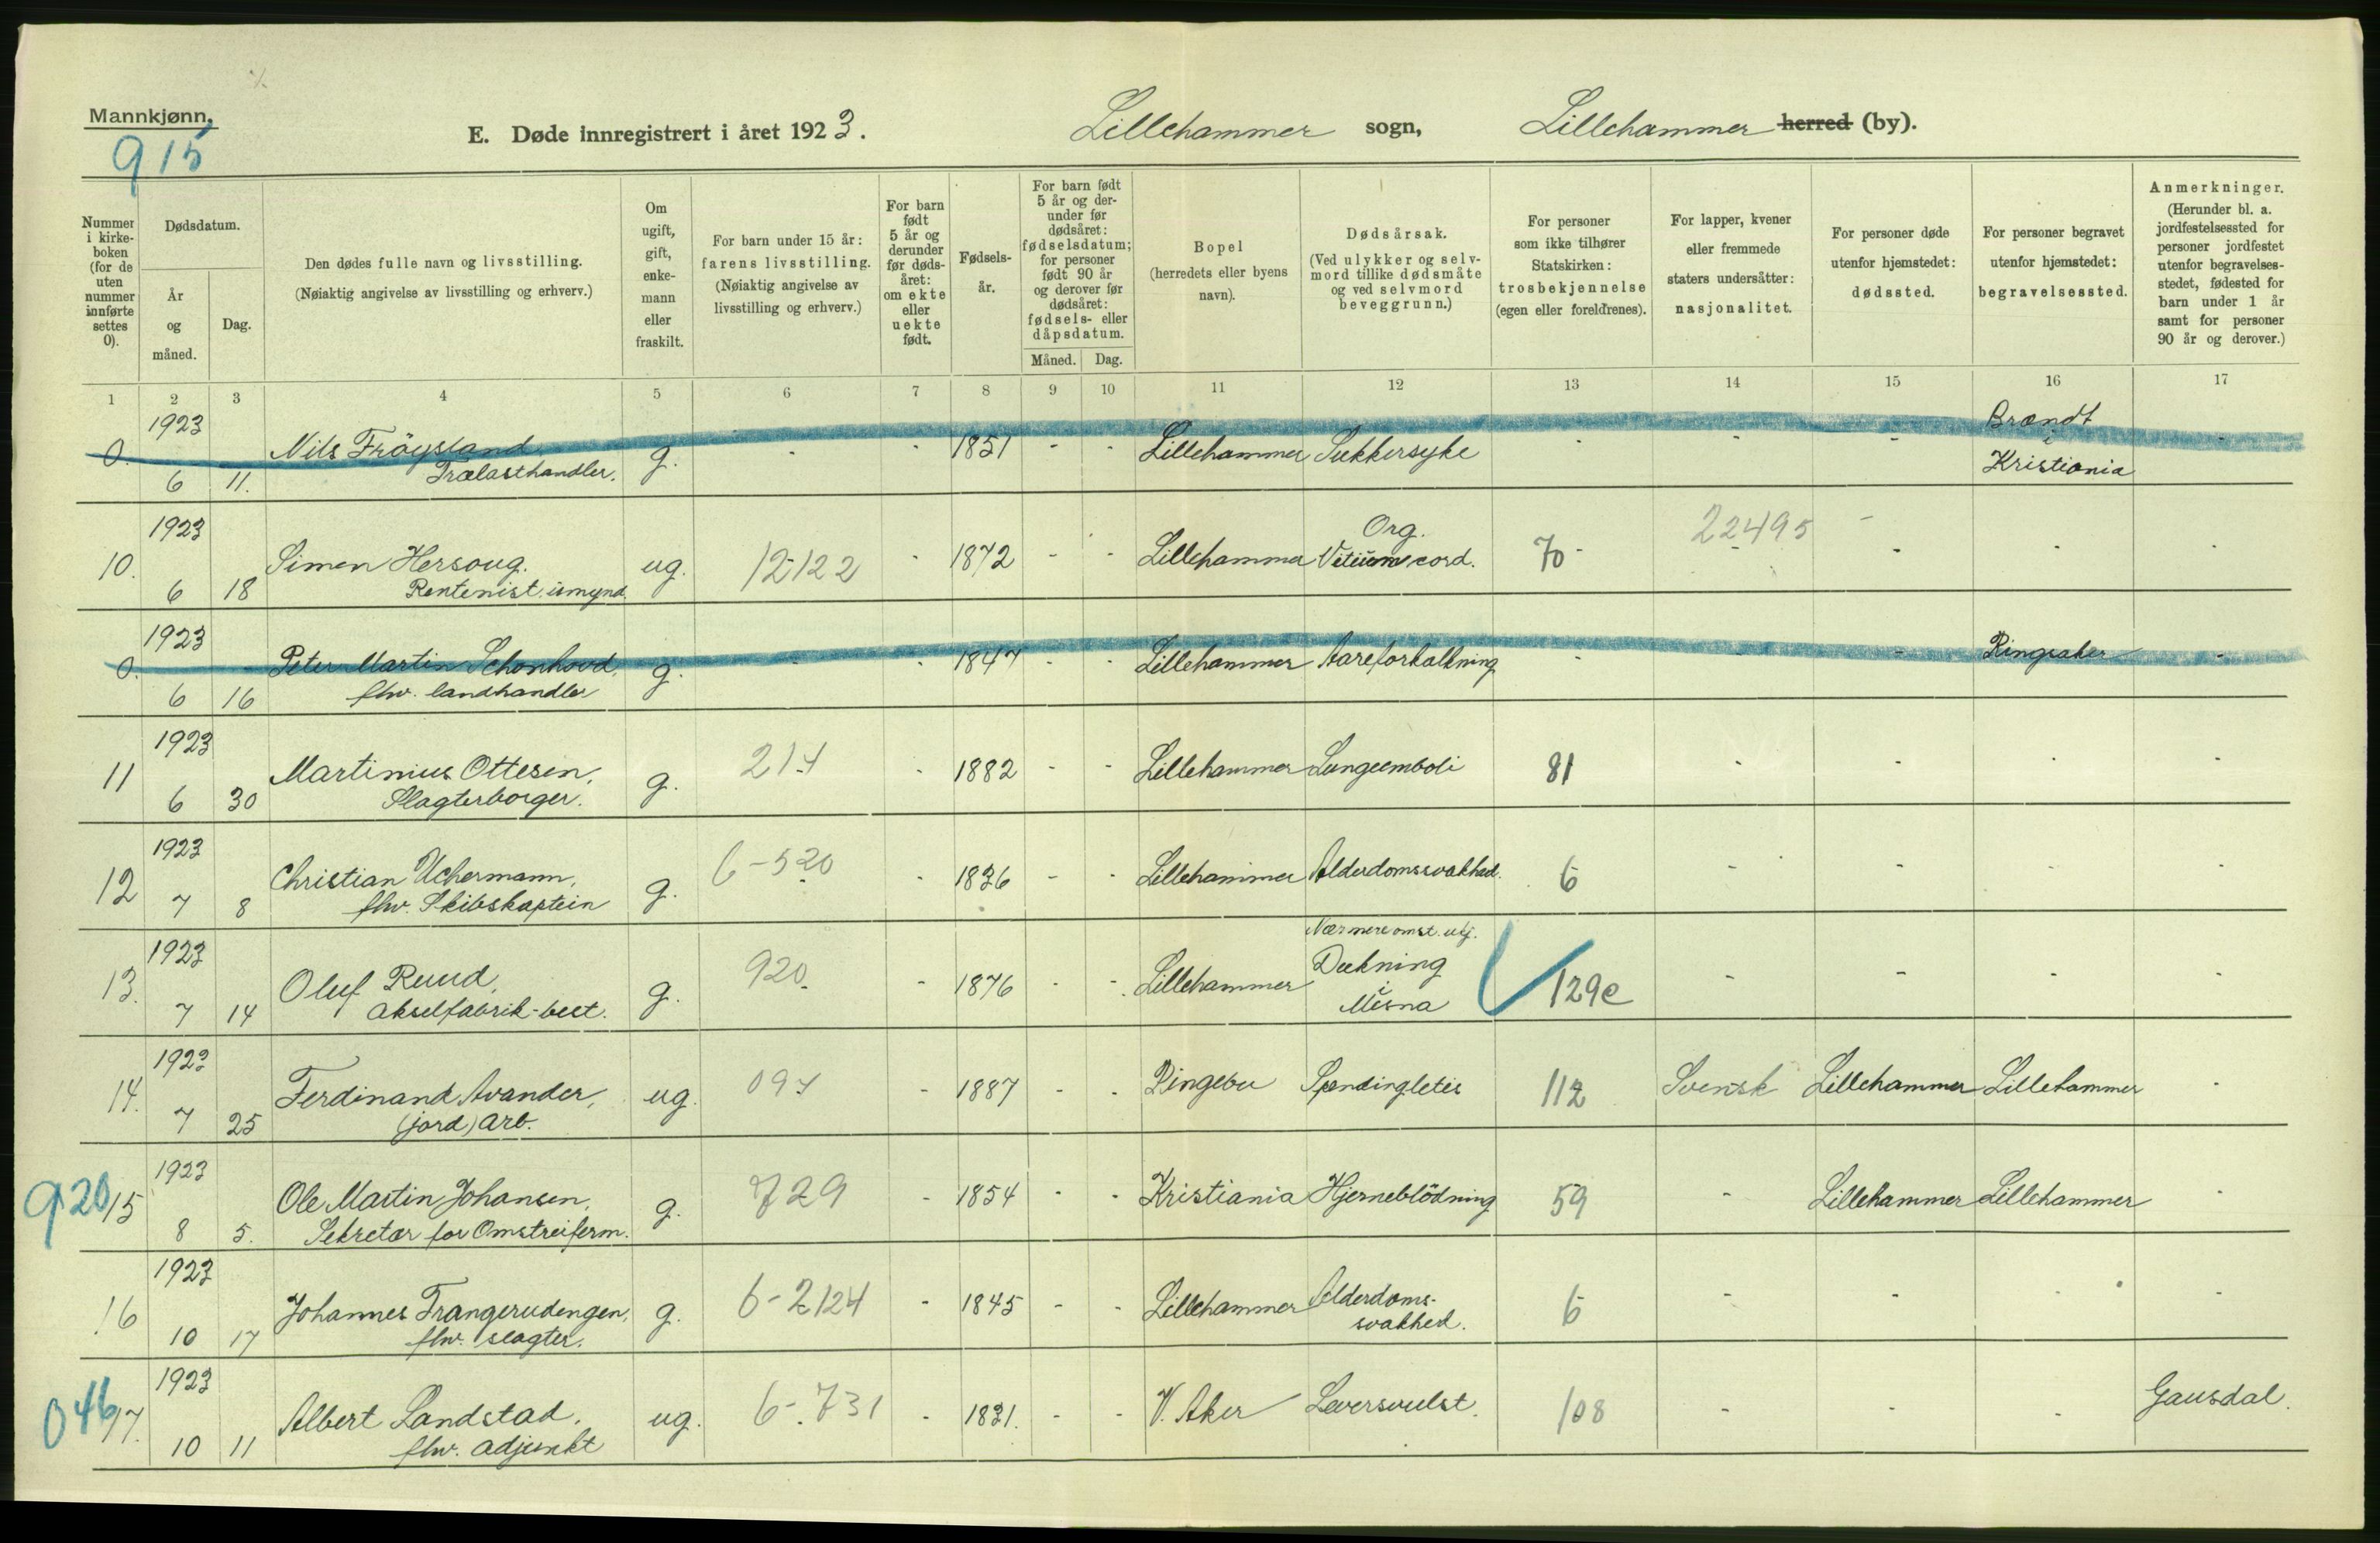 Mannkjønn.
915
E. Døde innregistrert i året 1923.
Lillehammer sogn,
Lillehammer herred (by).
Nummer i kirke-boken (for de uten nummer innførte settes 0).
Dødsdatum.
År og måned.
Dag.
Den dødes fulle navn og livsstilling.
(Nøiaktig angivelse av livsstilling og erhverv.)
Om ugift, gift, enke-mann eller fraskilt.
For barn under 15 år: farens livsstilling.
(Nøiaktig angivelse av livsstilling og erhverv.)
For barn født 5 år og derunder før døds-året: om ekte eller uekte født.
Fødsels-år.
For barn født 5 år og der-under før dødsåret: fødselsdatum; for personer født 90 år og derover før dødsåret: fødsels- eller dåpsdatum.
Måned. Dag.
Bopel
(herredets eller byens navn).
Dødsårsak.
(Ved ulykker og selv-mord tillike dødsmåte og ved selvmord beveggrunn.)
For personer som ikke tilhører Statskirken: trosbekjennelse (egen eller foreldrenes).
For lapper, kvener eller fremmede staters undersåtter: nasjonalitet.
For personer døde utenfor hjemstedet: dødssted.
For personer begravet utenfor hjemstedet: begravelsessted.
Anmerkninger.
(Herunder bl. a. jordfestelsessted for personer jordfestet utenfor begravelses-stedet, fødested for barn under 1 år samt for personer 90 år og derover.)
1 2 3 4 5 6 7 8 9 10 11 12 13 14 15 16 17
0. 1923 6 11. Nils Frøysland g. - - 1851 - - Lillehammer Sukkersyke - - - Brændt i Kristiania -
Trælasthandler.
10. 1923 6 18 Simen Hersoug. ug. 12-122 - 1872 - - Lillehammer Org. Vitium cord. 70 22495 - - -
Rentenist. umynd.
0. 1923 6 16 Peter Martin Schonhovd, g. - - 1847 - - Lillehammer Aareforkalkning - - - Ringsaker -
fhv. landhandler
11 1923 6 30 Martinius Ottesen, g. - 1882 - - Lillehammer Lungeemboli 81 - - - -
Slagterborger.
12 1923 7 8 Christian Uchermann, g. 6-520 - 1836 - - Lillehammer Alderdomssvakhed. 6 - - - -
fhv. Skibskaptein
13. 1923 7 14 Oluf Ruud, g. 920 - 1876 - - Lillehammer Nærmere omst. utj. Drukning i Mesna 129e - - - -
akselfabrik-best.
14. 1923 7 25 Ferdinand Avander, ug. - 1887 - - Ringebu 112 Svensk Lillehammer Lillehammer -
(jord) arb.
920 15 1923 8 5. Ole Martin Johansen, g. 729 - 1854 - - Kristiania Hjerneblödning 59 - Lillehammer Lillehammer -
Sekretær for Omstreiferm.
16 1923 10 17 Johannes Trangerudengen, g. 6-2124 - 1845 - - Lillehammer Alderdoms-svakhed. 6 - - - -
fhv. slagter.
046 17. 1923 10 11 Albert Landstad, ug. 6-731 - 1831. - - V. Aker Leversvulst. 108 - - - Gausdal.
fhv. adjunkt